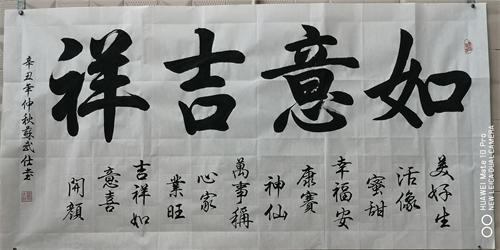 如意吉祥
美好生
活像
蜜甜
幸福安
康賽
神仙
萬事稱
心家
業旺
吉祥如
意喜
開顏
辛丑年仲秋蘇武仕書
HUAWEI Mate 10 Pro
NEW LEICA DUAL CAMERA